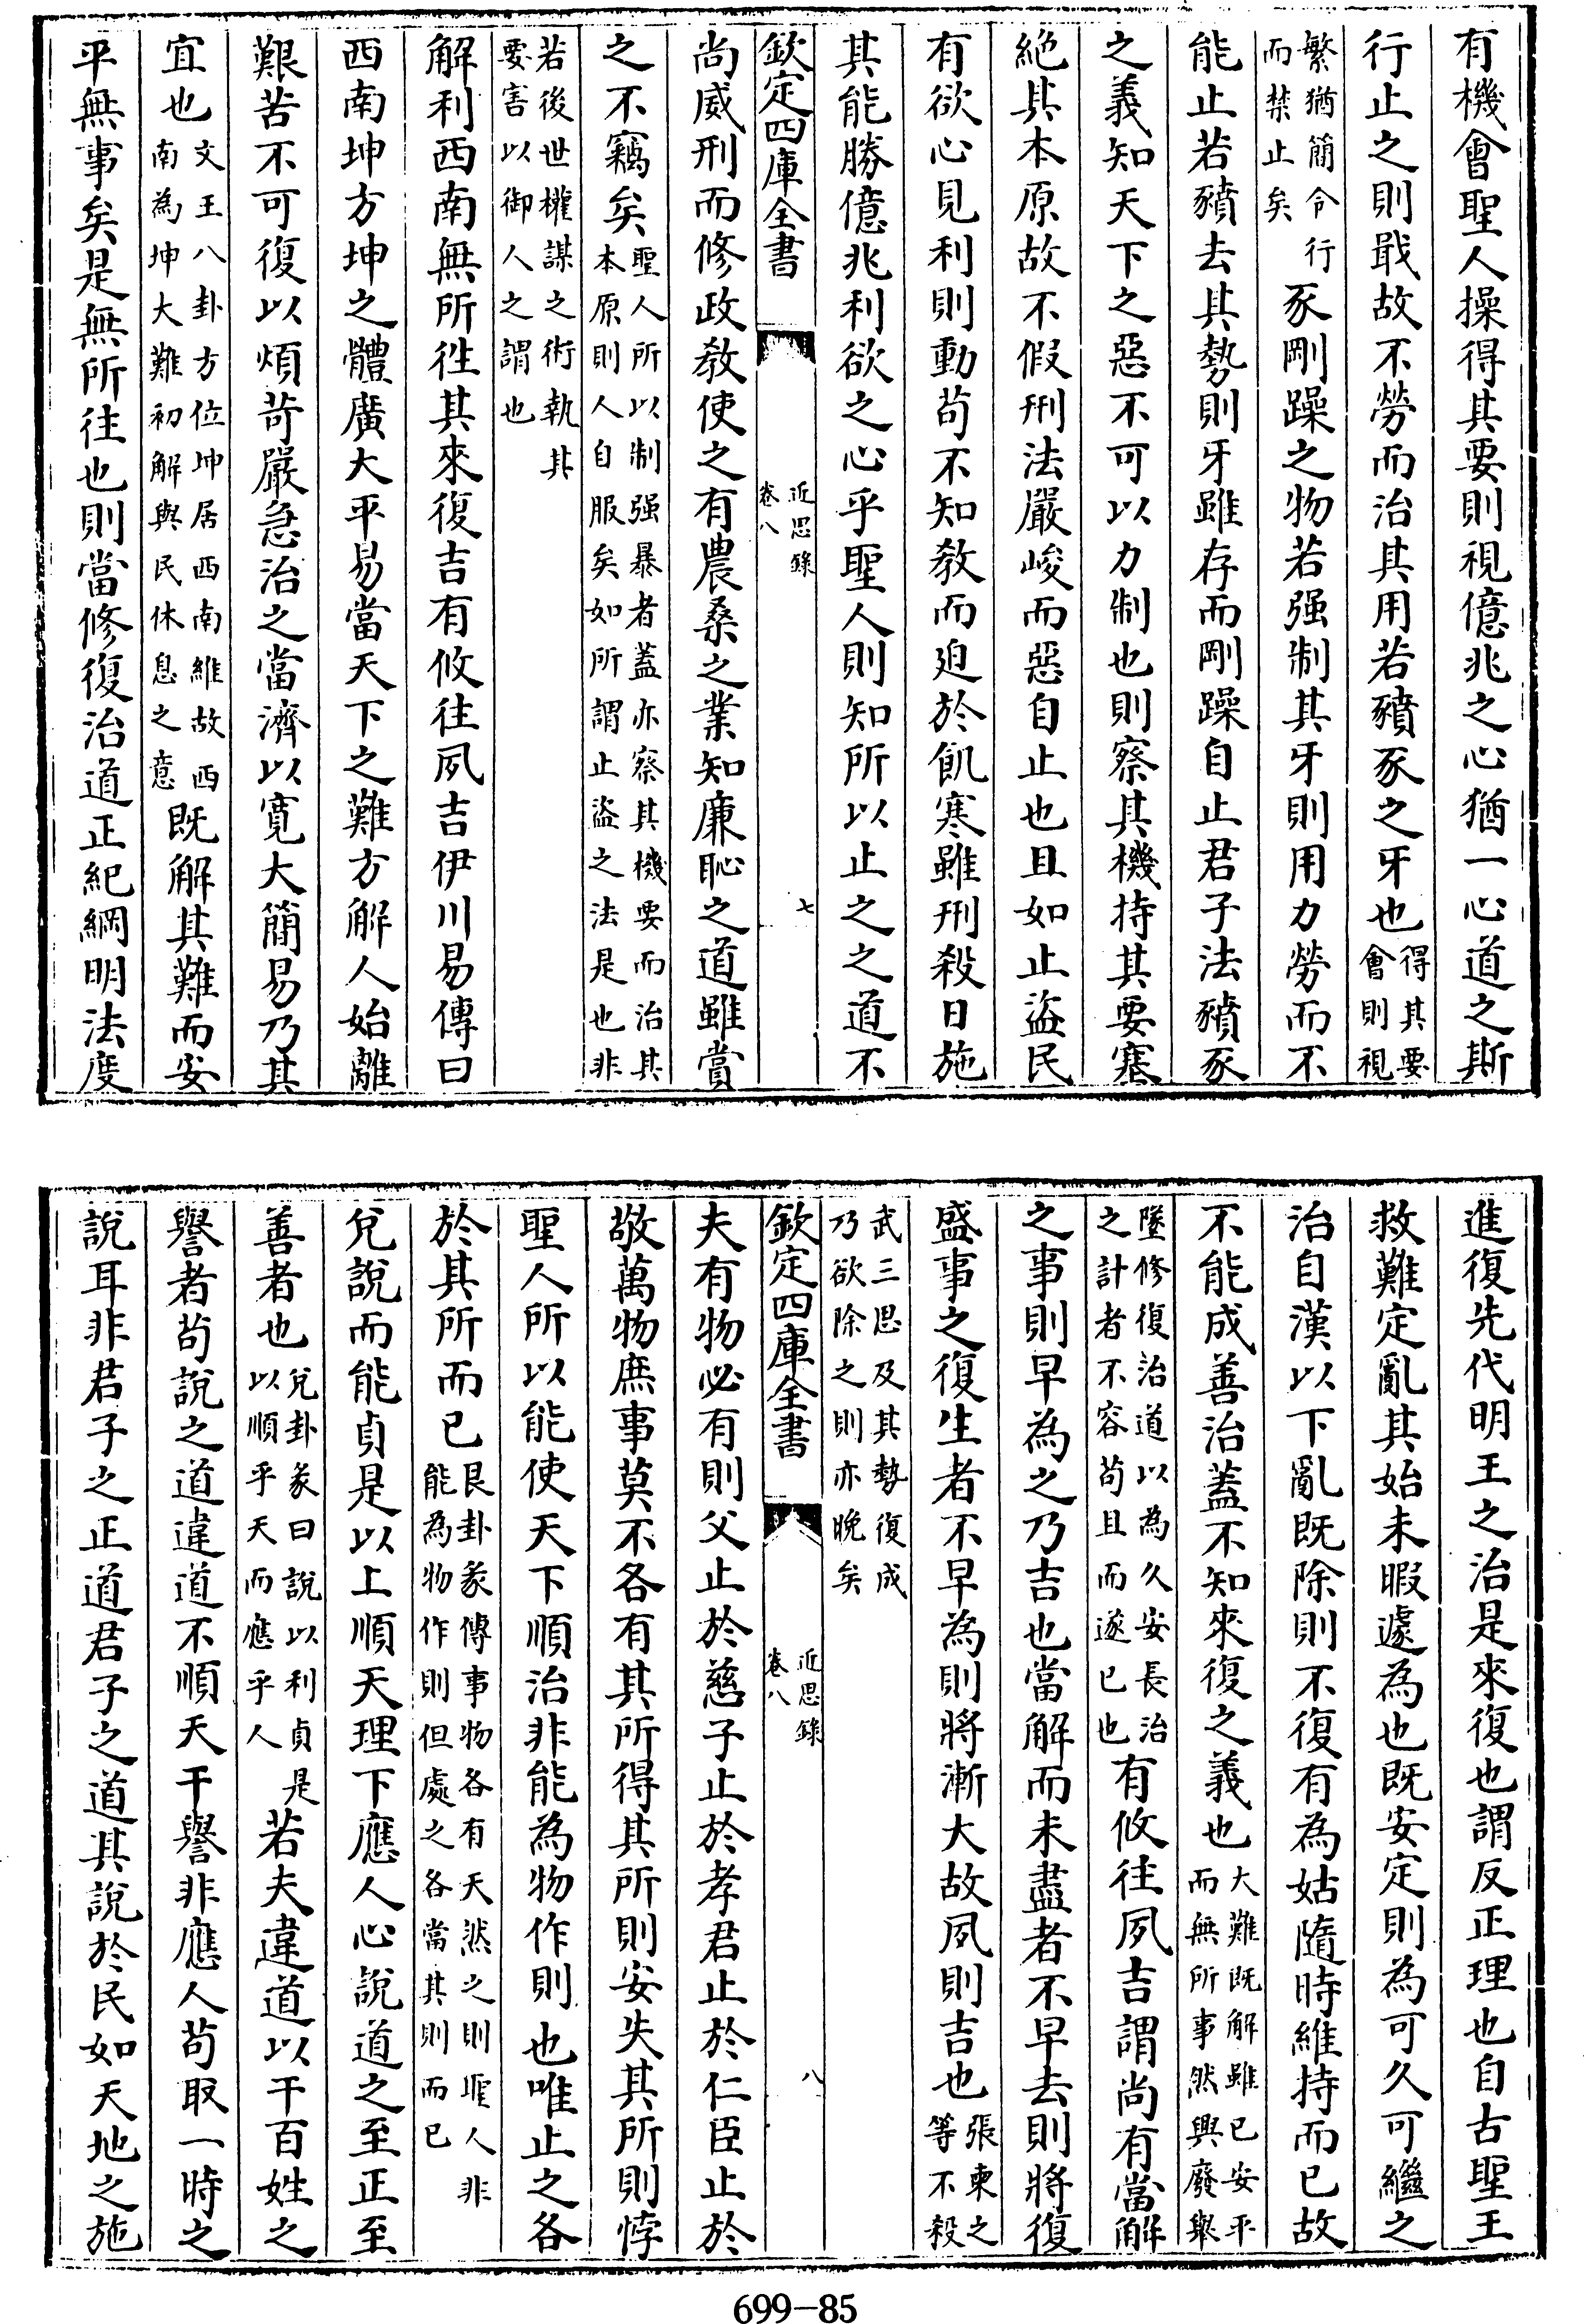 有機會聖人操得其要則視億兆之心猶一心道之斯
行止之則戢故不勞而治其用若豶豕之牙也得其要會則視
繁猶簡令行而禁止矣豕剛躁之物若强制其牙則用力勞而不
能止若豶去其勢則牙雖存而剛躁自止君子法豶豕
之義知天下之惡不可以力制也則察其機持其要塞
絶其本原故不假刑法嚴峻而惡自止也且如止盜民
有欲心見利則動苟不知教而迫於飢寒雖刑殺日施
其能勝億兆利欲之心乎聖人則知所以止之之道不
欽定四庫全書 近思錄 卷八 七
尚威刑而修政教使之有農桑之業知廉恥之道雖賞
之不竊矣聖人所以制强暴者蓋亦察其機要而治其本原則人自服矣如所謂止盜之法是也非
若後世權謀之術執其要害以御人之謂也
解利西南無所徃其來復吉有攸往夙吉伊川易傳曰
西南坤方坤之體廣大平易當天下之難方解人始離
艱苦不可復以煩苛嚴急治之當濟以寛大簡易乃其
宜也文王八卦方位坤居西南維故西南為坤大難初解與民休息之意既解其難而安
平無事矣是無所往也則當修復治道正紀綱明法度
進復先代明王之治是來復也謂反正理也自古聖王
救難定亂其始未暇遽為也既安定則為可久可繼之
治自漢以下亂既除則不復有為姑隨時維持而已故
不能成善治蓋不知來復之義也大難既解雖已安平而無所事然興廢舉
墜修復治道以為久安長治之計者不容苟且而遂已也有攸往夙吉謂尚有當解
之事則早為之乃吉也當解而未盡者不早去則將復
盛事之復生者不早為則將漸大故夙則吉也張柬之等不殺
武三思及其勢復成乃欲除之則亦晚矣
欽定四庫全書 近思錄 卷八 八
夫有物必有則父止於慈子止於孝君止於仁臣止於
敬萬物庶事莫不各有其所得其所則安失其所則悖
聖人所以能使天下順治非能為物作則也唯止之各
於其所而已艮卦彖傳事物各有天然之則聖人非能為物作則但處之各當其則而已
兌說而能貞是以上順天理下應人心說道之至正至
善者也兌卦彖曰說以利貞是以順乎天而應乎人若夫違道以干百姓之
譽者苟說之道違道不順天干譽非應人苟取一時之
說耳非君子之正道君子之道其說於民如天地之施
699-85